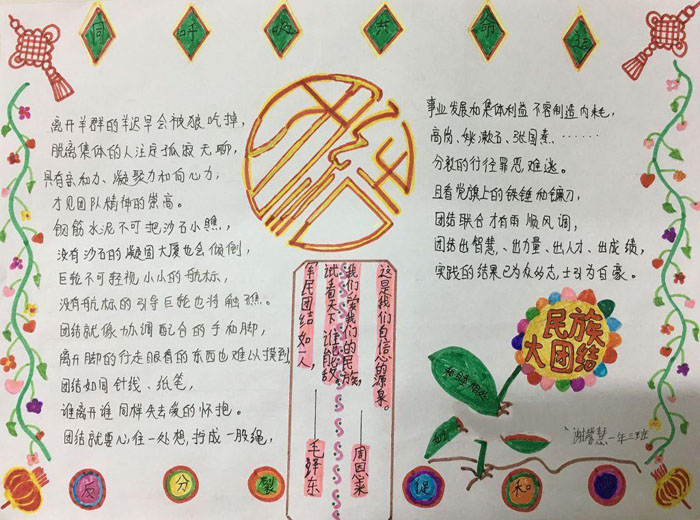 同呼吸共命运
离开羊群的羊迟早会被狼吃掉，
脱离集体的人注定孤寂无聊，
具有亲和力、凝聚力和向心力，
才见团队精神的崇高。
钢筋水泥不可把沙石小瞧，
没有沙石的凝固大厦也会倾倒，
巨轮不可轻视小小的航标，
没有航标的引导巨轮也将触礁。
团结就像协调配合的手和脚，
离开脚的行走眼看的东西也难以摸到，
团结如同针线、纸笔，
谁离开谁同样失去爱的怀抱。
团结就要心往一处想，拧成一股绳，
事业发展为集体利益不容制造内耗，
高岗、姚漱石、张国焘、……
分裂的行径罪恶难逃。
且看党旗上的铁锤和镰刀，
团结联合才有雨顺风调，
团结出智慧、出力量、出人才、出成绩，
实践的结果已为众多志士引为自豪。
这是我们自信心的源泉。
我们爱我们的民族，
——周恩来
试看天下谁能敌
军民团结如一人，
——毛泽东
民族
大团结
谢馨慧 一年三班
反分裂促和